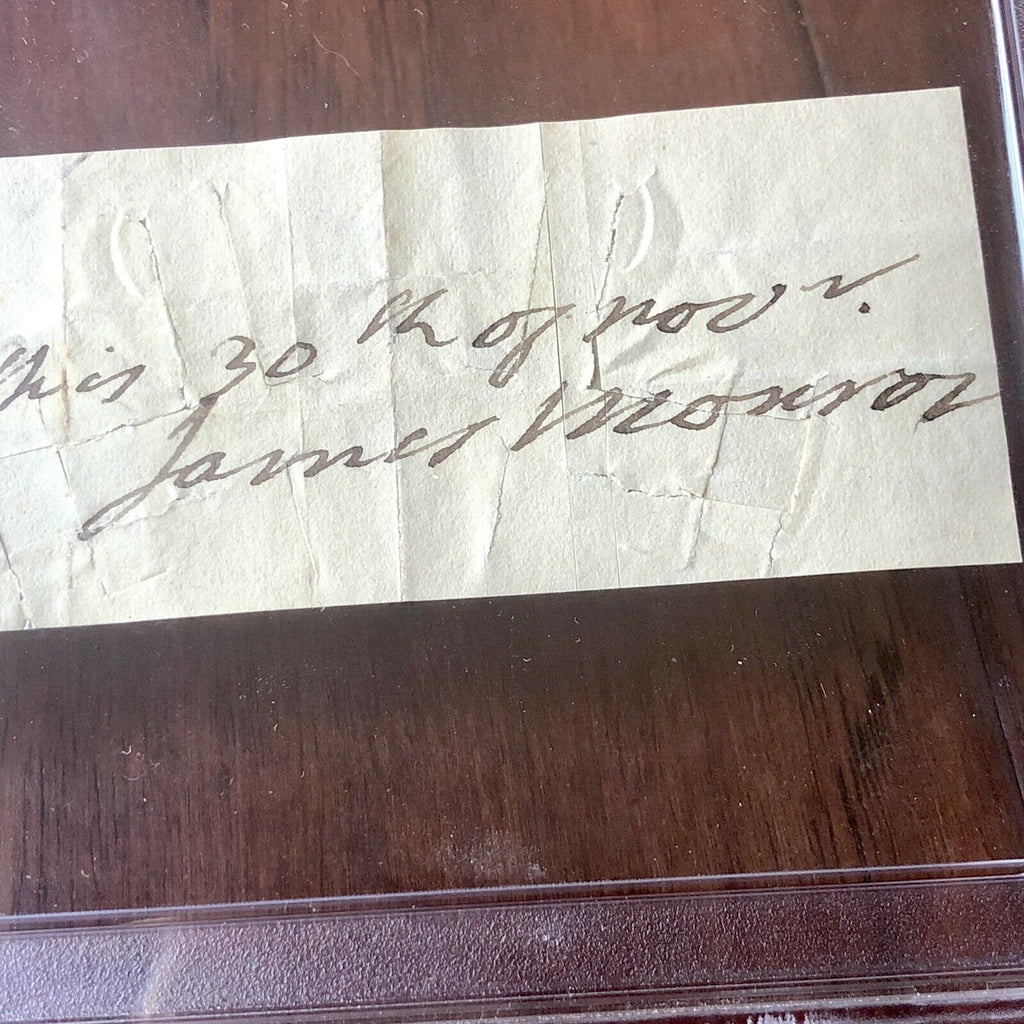 this 30th of novr.
James Monroe